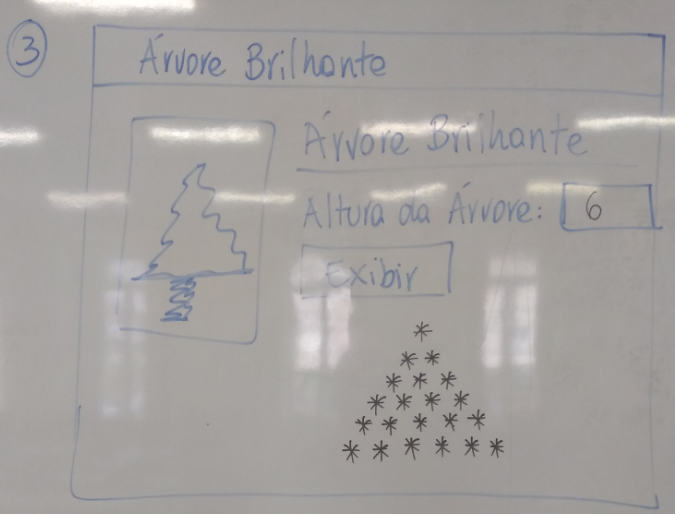 3
Árvore Brilhante
Árvore Brilhante
Altura da Árvore: 6
Exibir
*
* *
* * *
* * * *
* * * * *
* * * * * *